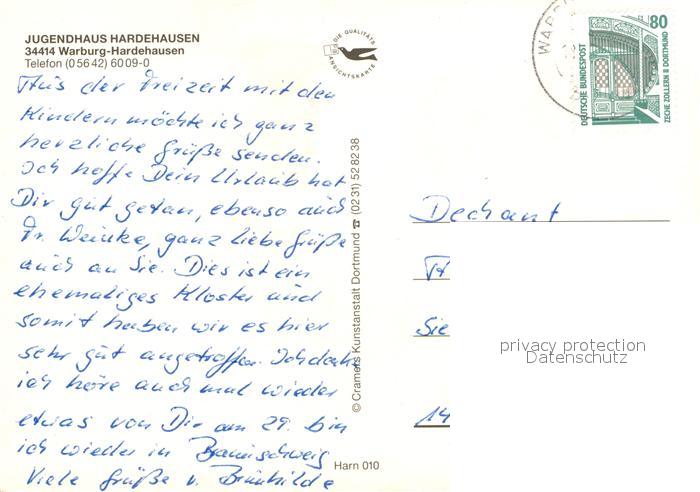 JUGENDHAUS HARDEHAUSEN
34414 Warburg-Hardehausen
Telefon (0 56 42) 60 09-0
Aus der Freizeit mit den
Kindern möchte ich ganz
herzliche Grüße senden.
Ich hoffe Dein Urlaub hat
Dir gut getan, ebenso auch
Fr. Weinke, ganz liebe Grüße
auch an Sie. Dies ist ein
ehemaliges Kloster und
somit haben wir es hier
sehr gut angetroffen. Ich denke
ich höre auch mal wieder
etwas von Dir am 29. bin
ich wieder in Braunschweig
Viele Grüße v. Brünhilde
DIE QUALITÄTS
ANSICHTSKARTE
© Cramers Kunstanstalt Dortmund ☎ (02 31) 52 82 38
Harn 010
WARB
80
DEUTSCHE BUNDESPOST
ZECHE ZOLLERN II DORTMUND
Dechant
Sie
14
privacy protection
Datenschutz